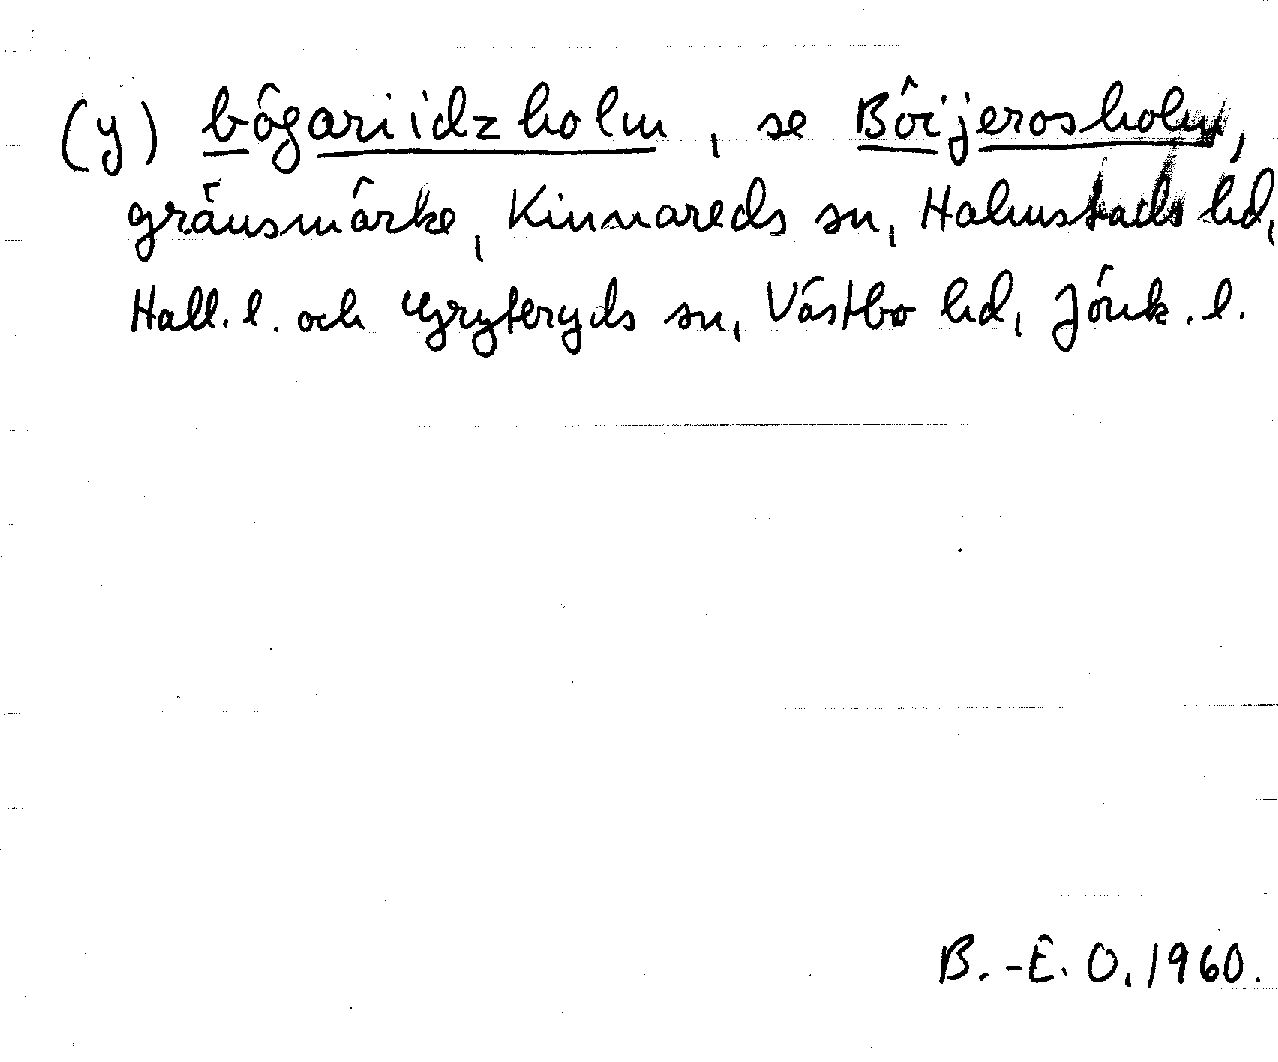 (y) bögariidzholm, se Böijerosholm,
gränsmärke, Kinnareds sn, Halmstads hd,
Hall. l. och Gryteryds sn, Västbo hd, Jönk. l.
B.-E. O. 1960.